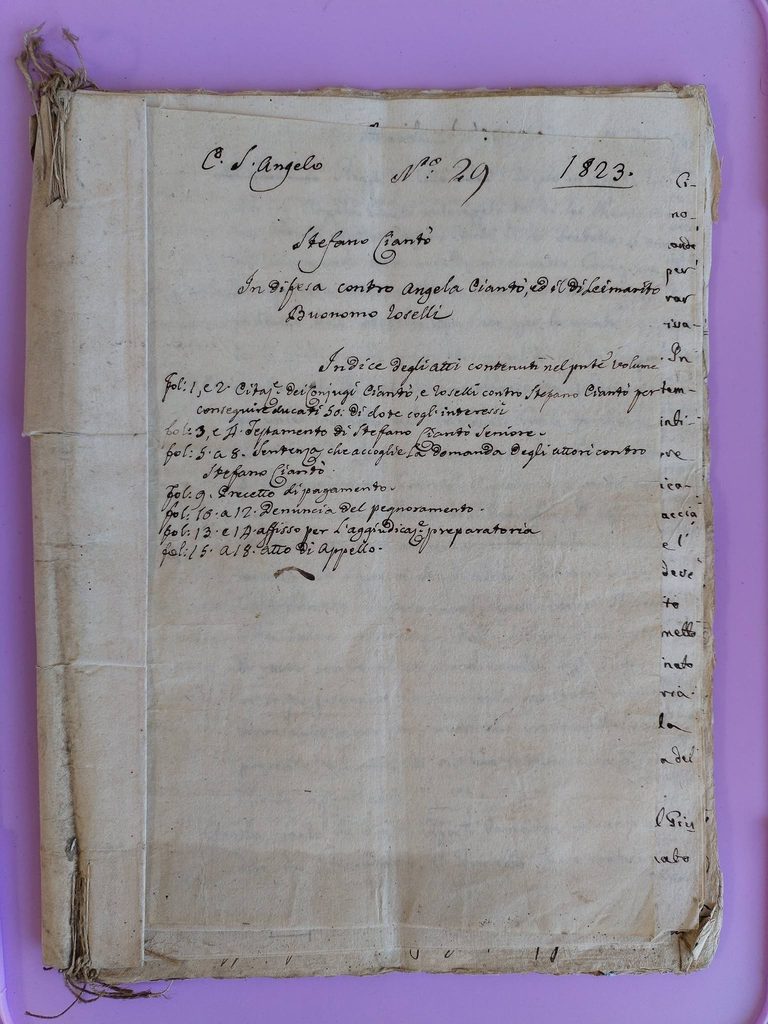 C.º S. Angelo Nº: 29 1823.
Stefano Ciantò
In difesa contro Angela Ciantò, ed il di Lei marito
Buonomo Roselli
Indice degli atti contenuti nel pnte volume
fol: 1, e 2. Citaz.e dei Conjugi Ciantò, e Roselli contro Stefano Ciantò per
conseguire ducati 50. di dote cogli interessi
fol: 3, e 4. Testamento di Stefano Ciantò Seniore.
fol: 5. a 8. Sentenza che accoglie la domanda degli attori contro
Stefano Ciantò.
fol: 9. Precetto di pagamento.
fol: 10. a 12. Denuncia del pegnoramento.
fol: 13. e 14. affisso per l'aggiudicaz.e preparatoria
fol: 15. a 18. atto di Appello.
Ci-
no-
onde
per
rar
iva-
In
tem-
inti-
ve
ica-
accia
e l'
deve
to
nello
inato
ria.
la
a del
l Giu
iato